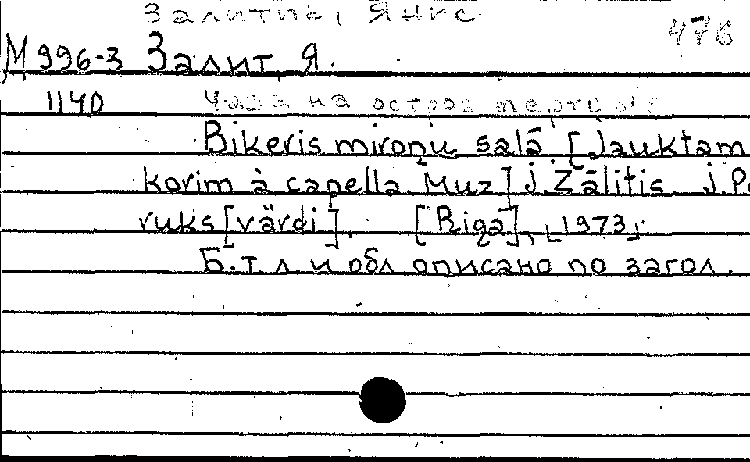 Залитинь, Янис
476
М 996-3 Залит, Я.
1140 Чаша на остров мертвых
Bikeris mironu salā. [Jauktam
korim à capella. Muz] J. Zālitis. J. Po
ruks [vārdi]. [Rigā], [1973].
Б. т. л. и обл. описано по загол.